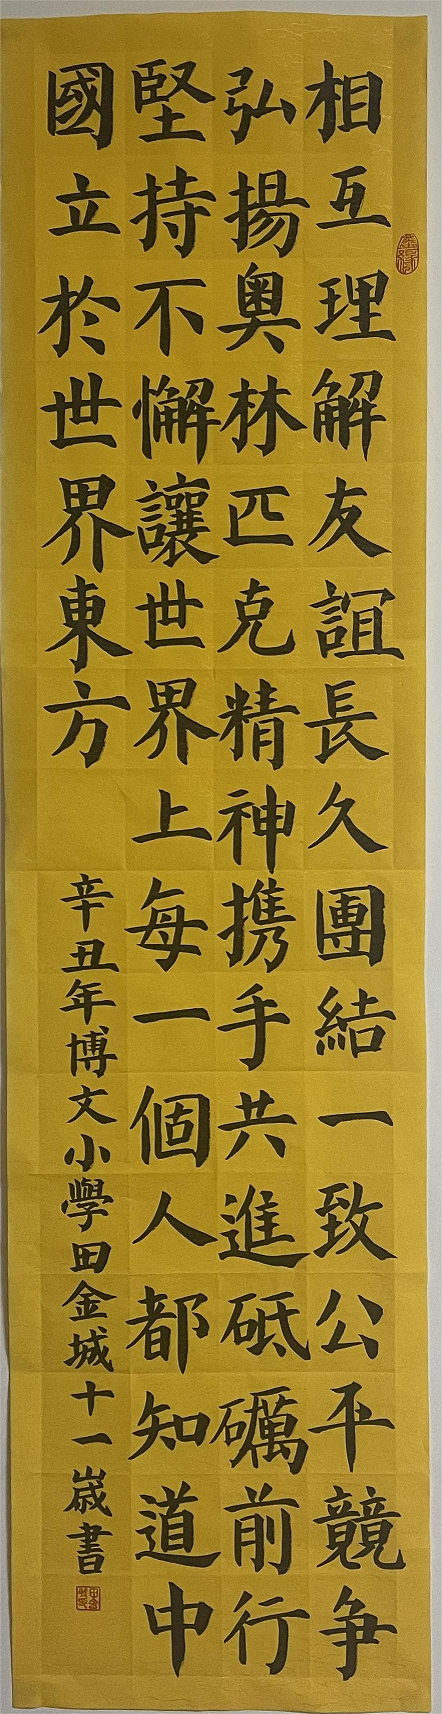 相互理解友誼長久團結一致公平競爭
弘揚奧林匹克精神攜手共進砥礪前行
堅持不懈讓世界上每一個人都知道中
國立於世界東方
辛丑年博文小學田金城十一歲書